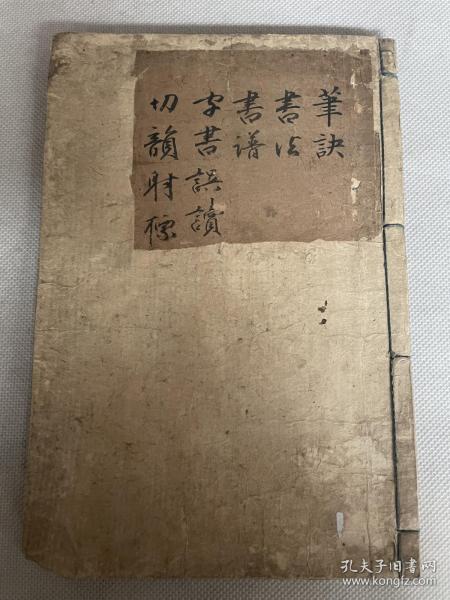 筆訣
書法
書譜
字書誤讀
切韻射標
孔夫子旧书网
www.kongfz.com